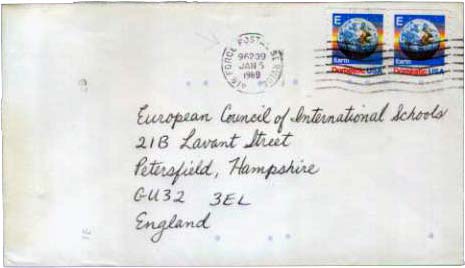 AIR FORCE POSTAL SERVICE
96239
JAN 5
1989
E
Earth
Domestic USA
E
Earth
Domestic USA
European Council of International Schools
21B Lavant Street
Petersfield, Hampshire
GU32 3EL
England